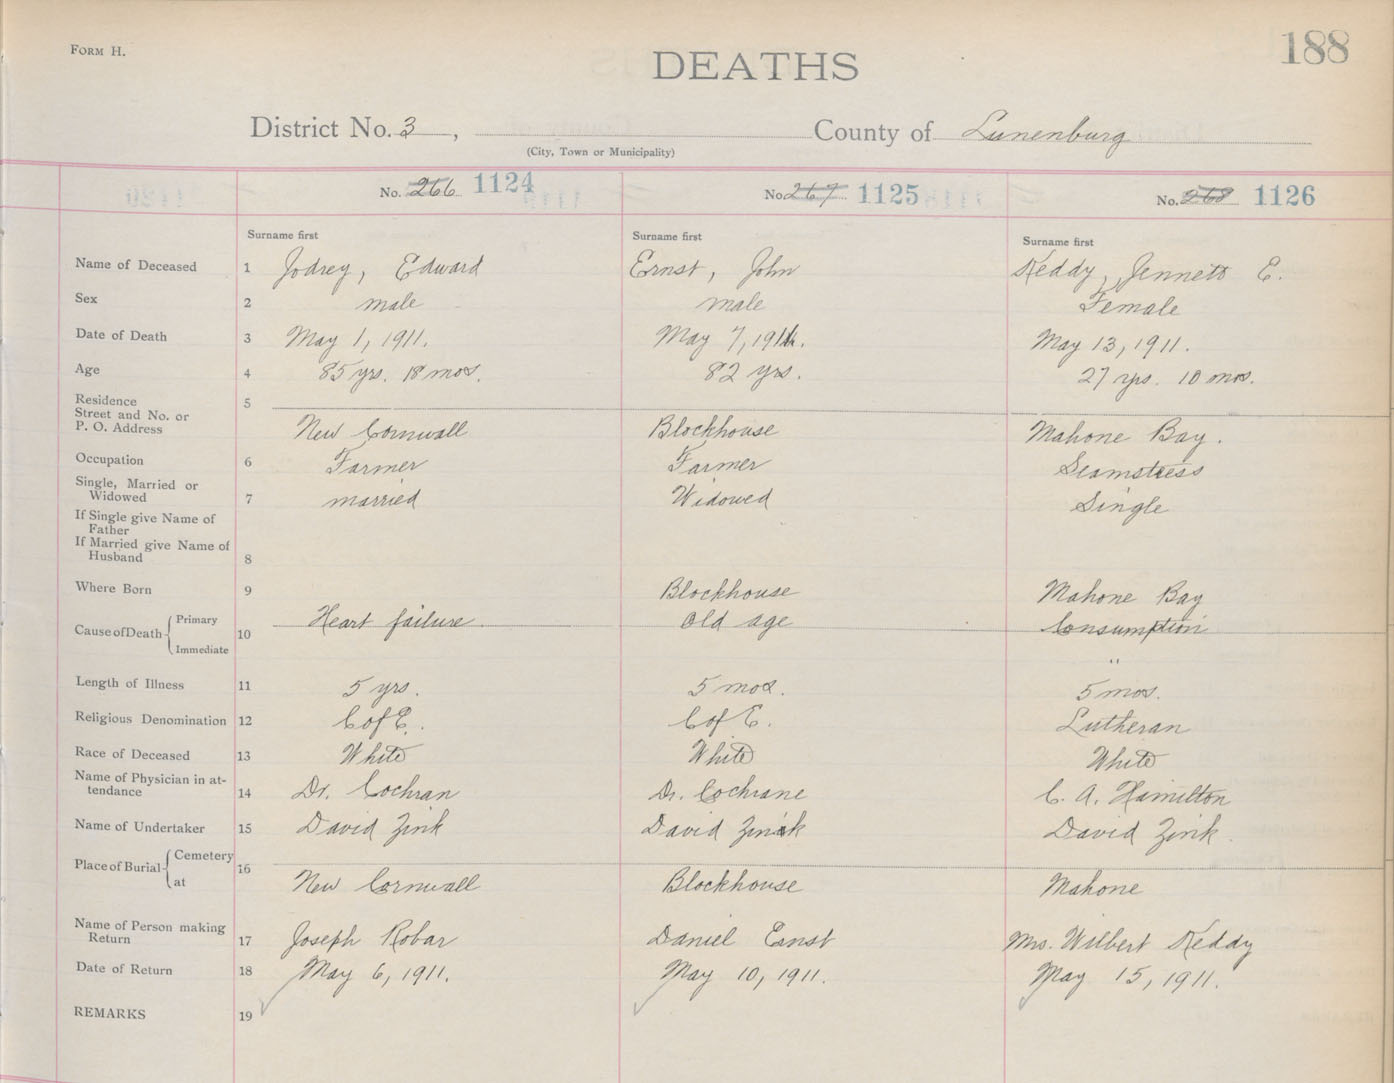 FORM H.
DEATHS
188
District No. 3, County of Lunenburg
(City, Town or Municipality)
No. 266 1124 No. 267 1125 No. 268 1126
Surname first Surname first Surname first
Name of Deceased 1 Jodrey, Edward Ernst, John Keddy, Jennett E.
Sex 2 male male Female
Date of Death 3 May 1, 1911. May 7, 1911. May 13, 1911.
Age 4 85 yrs. 18 mos. 82 yrs. 27 yrs. 10 mos.
Residence 5
Street and No. or
P. O. Address New Cornwall Blockhouse Mahone Bay.
Occupation 6 Farmer Farmer Seamstress
Single, Married or
Widowed 7 married Widowed Single
If Single give Name of
Father
If Married give Name of
Husband 8
Where Born 9 Blockhouse Mahone Bay
Cause of Death Primary 10 Heart failure Old age Consumption
Immediate "
Length of Illness 11 5 yrs. 5 mos. 5 mos.
Religious Denomination 12 C of E. C of E. Lutheran
Race of Deceased 13 White White White
Name of Physician in at-
tendance 14 Dr. Cochran Dr. Cochrane C. A. Hamilton
Name of Undertaker 15 David Zink David Zink David Zink
Place of Burial Cemetery 16
at New Cornwall Blockhouse Mahone
Name of Person making
Return 17 Joseph Robar Daniel Ernst Mrs. Wilbert Keddy
Date of Return 18 May 6, 1911. May 10, 1911. May 15, 1911.
REMARKS 19